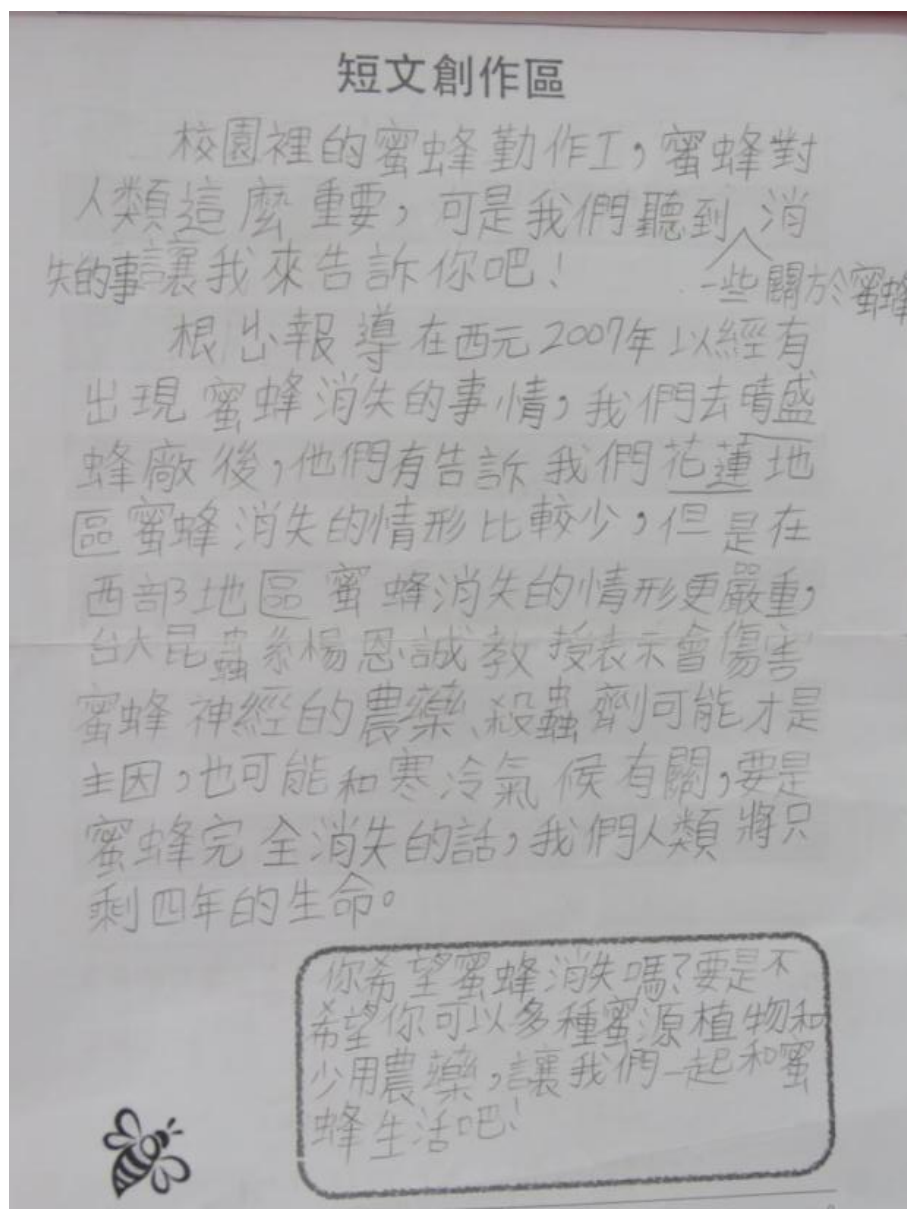 短文創作區
校園裡的蜜蜂勤作工，蜜蜂對
人類這麼重要，可是我們聽到消
一些關於蜜蜂
失的事讓我來告訴你吧！
根出報導在西元2007年以經有
出現蜜蜂消失的事情，我們去晴盛
蜂廠後，他們有告訴我們花蓮地
區蜜蜂消失的情形比較少，但是在
西部地區蜜蜂消失的情形更嚴重，
台大昆蟲系楊恩誠教授表示會傷害
蜜蜂神經的農藥、殺蟲劑可能才是
主因，也可能和寒冷氣候有關，要是
蜜蜂完全消失的話，我們人類將只
剩四年的生命。
你希望蜜蜂消失嗎？要是不
希望你可以多種蜜源植物和
少用農藥，讓我們一起和蜜
蜂生活吧！